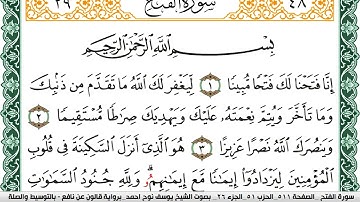 ٢٩ سُورَةُ الفَتْحِ ٤٨
بِسْمِ اللَّهِ الرَّحْمَٰنِ الرَّحِيمِ
إِنَّا فَتَحْنَا لَكَ فَتْحًا مُّبِينًا ١ لِّيَغْفِرَ لَكَ اللَّهُ مَا تَقَدَّمَ مِن ذَنۢبِكَ
وَمَا تَأَخَّرَ وَيُتِمَّ نِعْمَتَهُ عَلَيْكَ وَيَهْدِيَكَ صِرَاطًا مُّسْتَقِيمًا ٢
وَيَنصُرَكَ اللَّهُ نَصْرًا عَزِيزًا ٣ هُوَ الَّذِي أَنزَلَ السَّكِينَةَ فِي قُلُوبِ
الْمُؤْمِنِينَ لِيَزْدَادُوا إِيمَانًا مَّعَ إِيمَانِهِمْ وَلِلَّهِ جُنُودُ السَّمَاوَاتِ
سورة الفتح . الصفحة ٥١١ الحزب ٥١ الجزء ٢٦ بصوت الشيخ يوسف نوح احمد .برواية قالون عن نافع - بالتوسيط والصلة